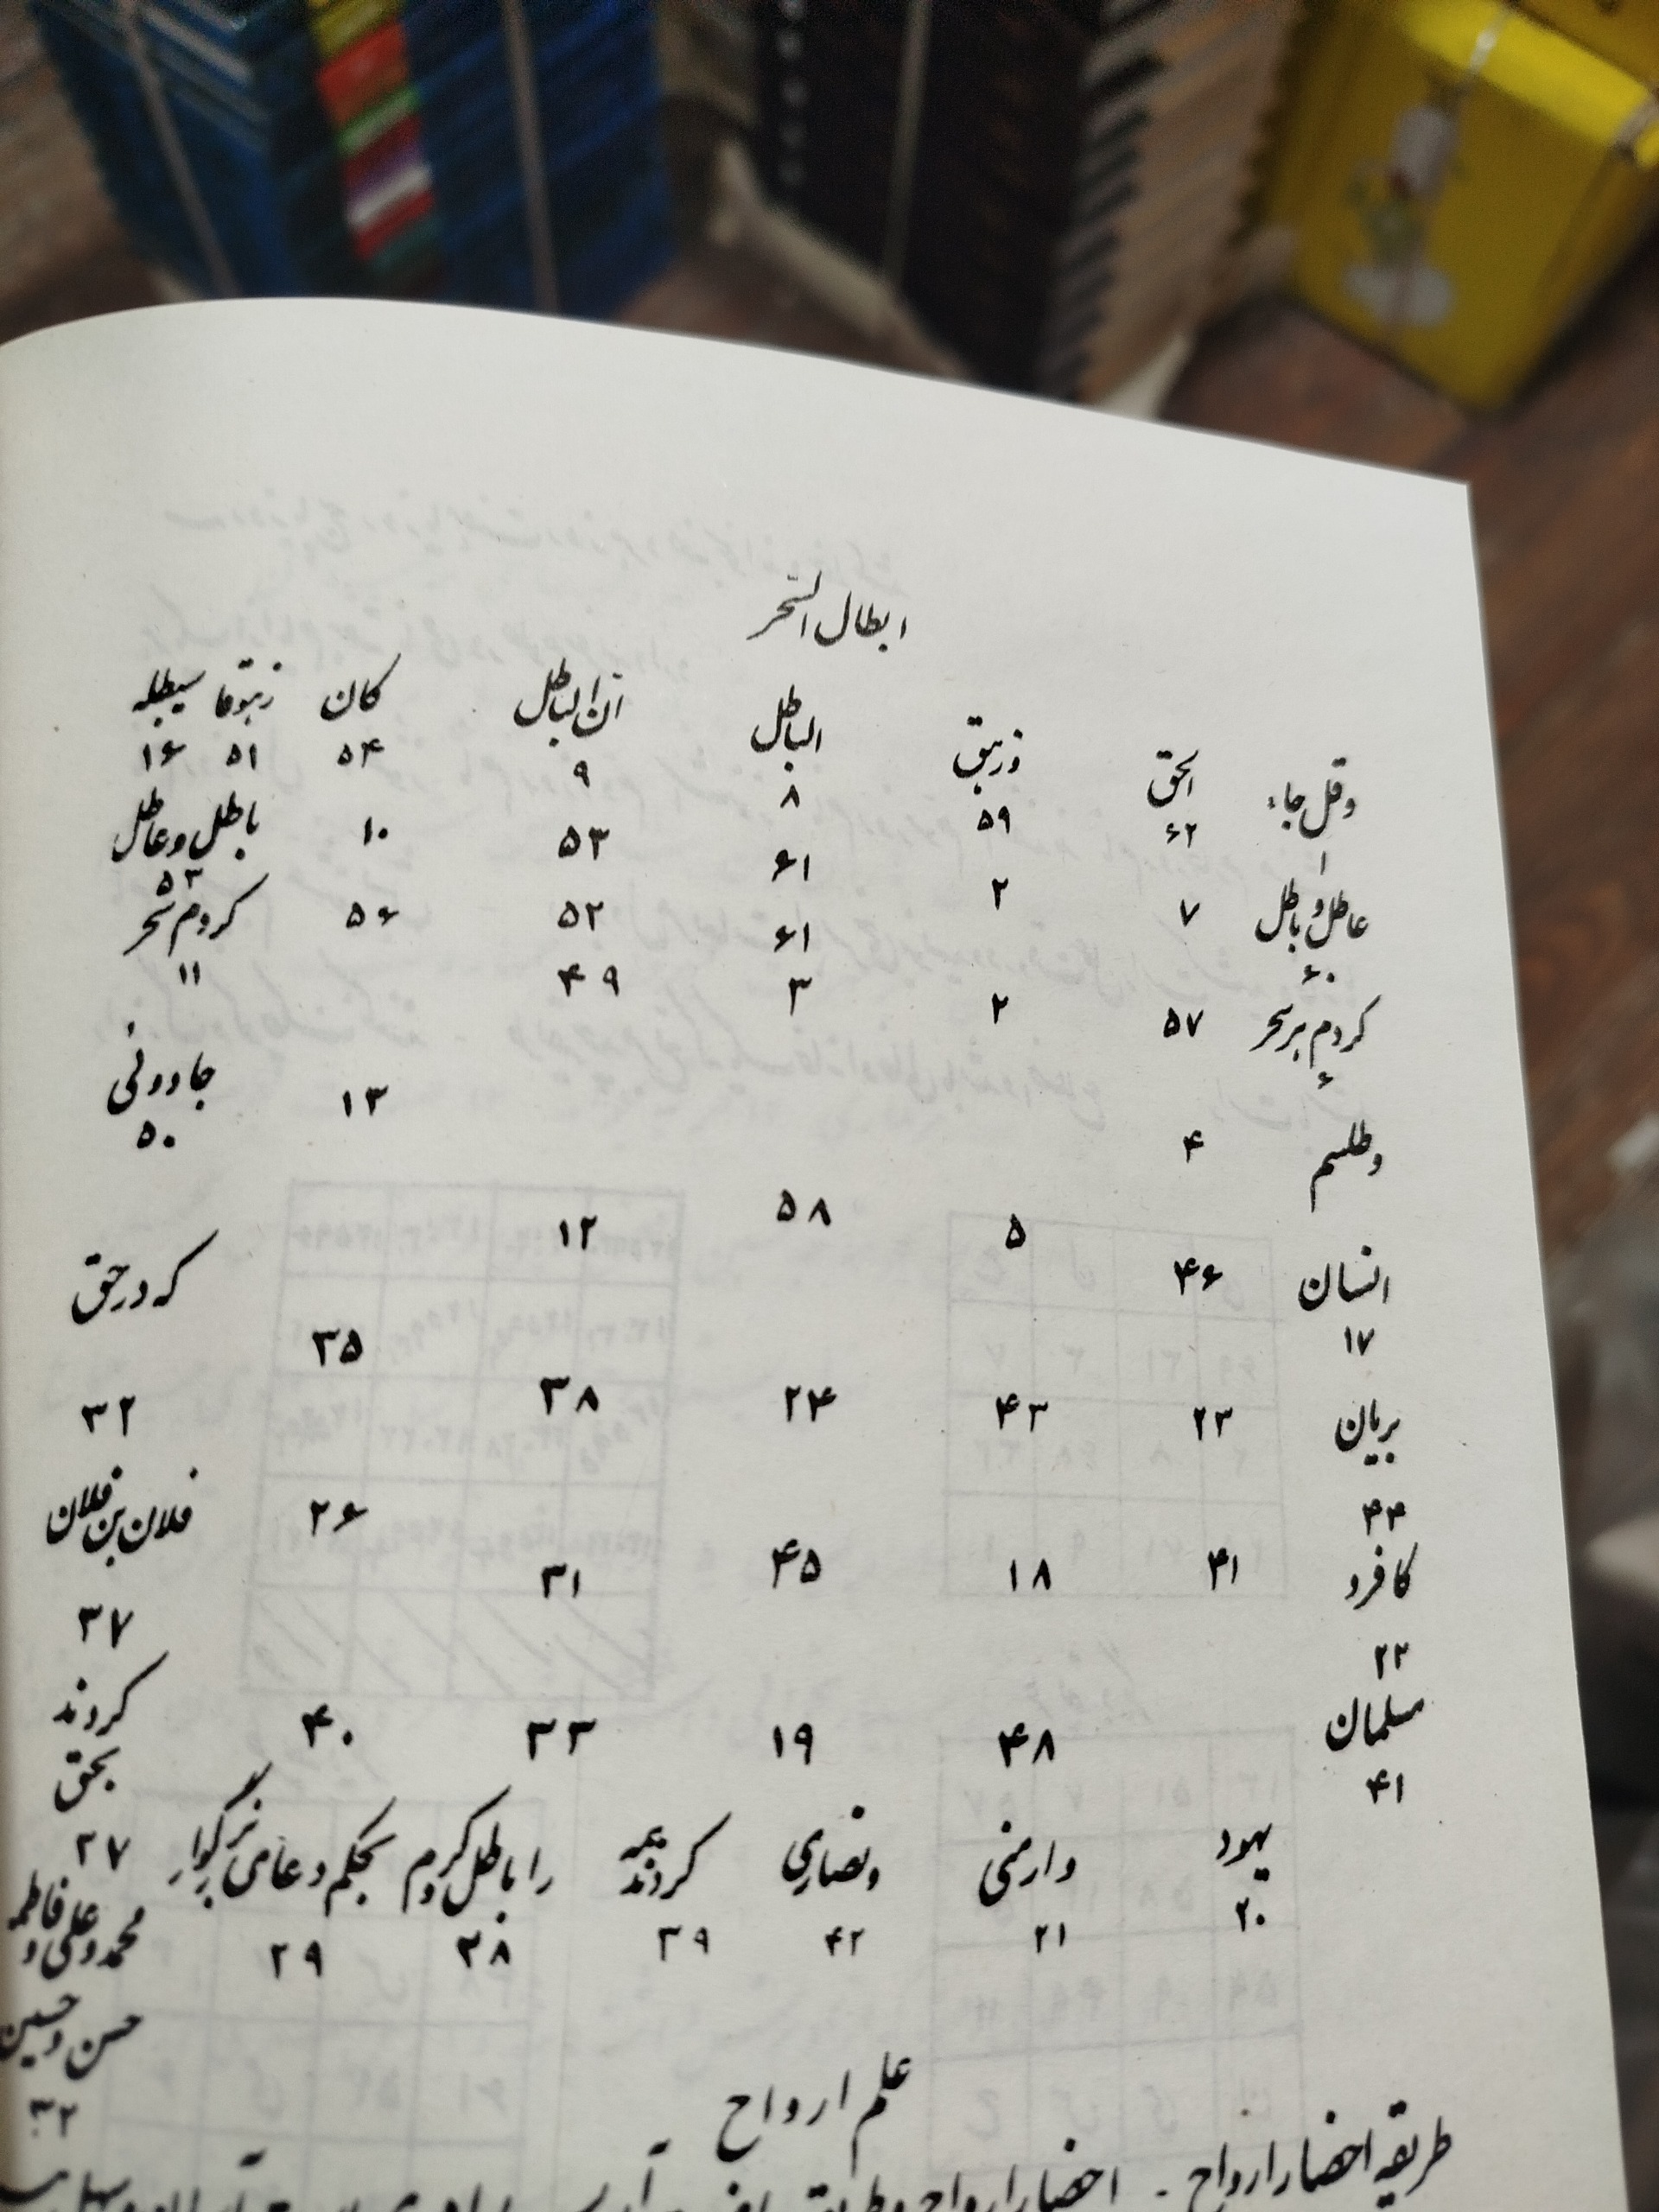 ابطال السحر
وقل جاء الحق وزهق الباطل ان الباطل کان زهوقا سیبطله
۱ ۶۲ ۵۹ ۸ ۹ ۵۴ ۵۱ ۱۶
عاطل و باطل ۷ ۲ ۶۱ ۵۳ ۱۰ باطل و عاطل
۶۰ ۶۱ ۵۲ ۵۶ ۵۳
کردم بر سحر ۵۷ ۲ ۳ ۴۹ کردم سحر
۶ ۱۱
وطلسم ۴ ۱۳ جادوئی
۵۰
۵ ۵۸ ۱۲
انسان ۴۶ که در حق
۱۷ ۳۵
بریان ۲۳ ۴۳ ۲۴ ۳۸ ۳۲
۴۴ ۲۶ فلان بن فلان
کافرو ۴۱ ۱۸ ۴۵ ۳۱
۲۲ ۳۷
مسلمان ۴۸ ۱۹ ۳۳ ۴۰ کردند
۴۱ بحق
یهود وارمنی ونصاری کردند را باطل کردم بحکم دعای بزرگوار ۲۷
۲۰ ۲۱ ۴۲ ۳۹ ۲۸ ۲۹ محمد و علی و فاطمه
حسن و حسین
۳۲
علم ارواح
طریقه احضار ارواح - احضار ارواح